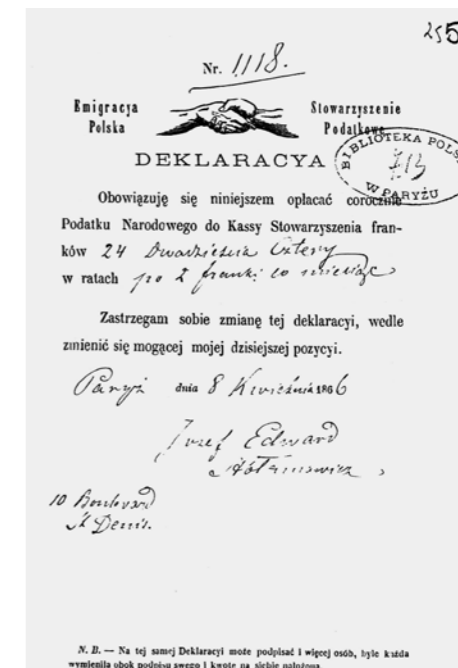 255
Nr. 1118.
Emigracya Stowarzyszenie
Polska Podatkowe
BIBLIOTEKA POLSKA
713
W PARYŻU
DEKLARACYA
Obowiązuję się niniejszem opłacać corocznie
Podatku Narodowego do Kassy Stowarzyszenia fran-
ków 24 Dwadzieścia Cztery
w ratach po 2 franki co miesiąc
Zastrzegam sobie zmianę tej deklaracyi, wedle
zmienić się mogącej mojej dzisiejszej pozycyi.
Paryż dnia 8 Kwietnia 1866
Jozef Edward
10 Boulevard
St Denis.
N. B. — Na tej samej Deklaracyi może podpisać i więcej osób, byle każda
wymieniła obok podpisu swego i kwotę na siebie nałożoną.